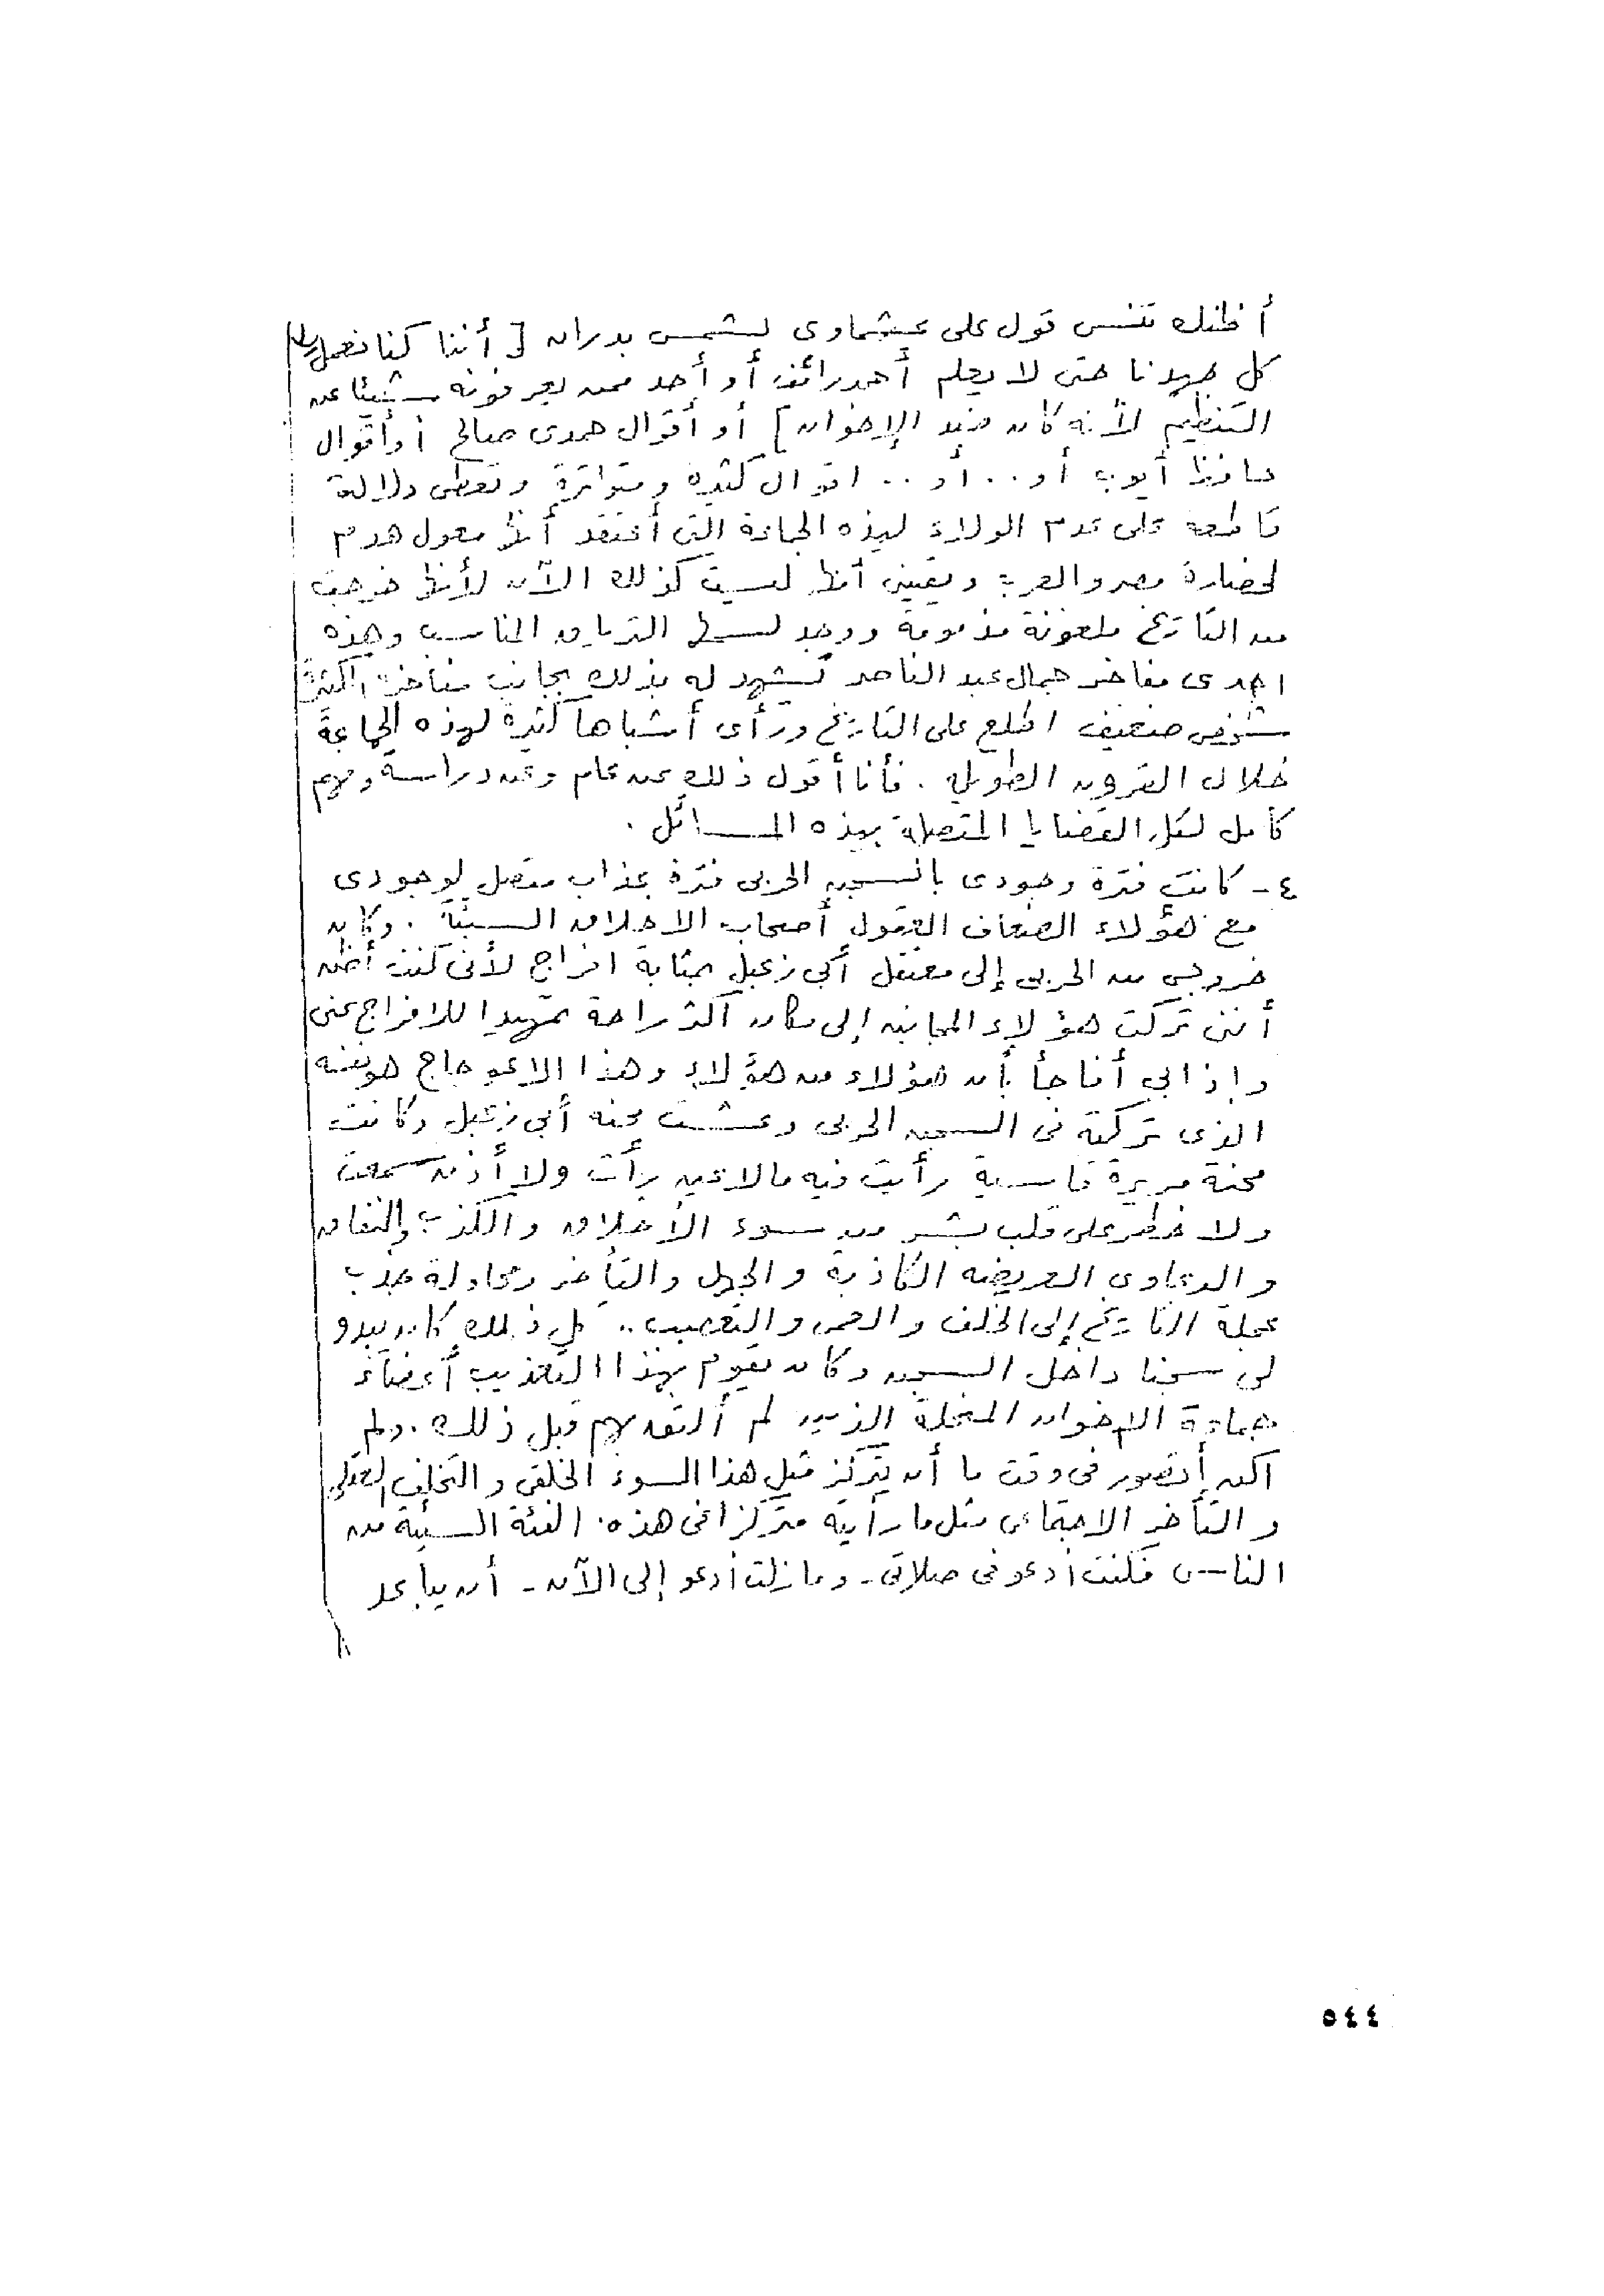 أظنك تنسى قول على عشماوى لشمس بدران [ أننا كنا نعمل
كل جهدنا حتى لا يعلم أحمد رائف أو أحد ممن يعرفونه شيئا عن
التنظيم لأنه كان ضد الإخوان ] أو أقوال حمدى صالح أو أقوال
حافظ أيوب أو .. أو .. اقوال كثيرة ومتواترة وتعطى دلالة
قاطعة على عدم الولاء لهذه الجماعة التى أعتقد أنها معول هدم
لحضارة مصر والعرب ويقينى أنها ليست كذلك الآن لأنها خرجت
من التاريخ ملعونة مذمومة ووجد لسمها الترياق المناسب وهذه
احدى مفاخر جمال عبد الناصر يشهد له بذلك بجانب مفاخره الكثيرة
شخص ضعيف اطلع على التاريخ ورأى أشباها كثيرة لهذه الجماعة
خلال القرون الطويلة . فأنا أقول ذلك عن علم وعن دراسة وفهم
كامل لكل القضايا المتصلة بهذه المسائل .
٤- كانت فترة وجودى بالسجن الحربى فترة عذاب متصل لوجودى
مع هؤلاء الضعاف العقول أصحاب الاخلاق السيئة . وكان
خروجى من الحربى إلى معتقل أبى زعبل بمثابة افراج لأنى كنت أظن
أننى تركت هؤلاء المجانين إلى مكان أكثر راحة تمهيدا للافراج عنى
وإذا بى أفاجأ بأن هؤلاء من هؤلاء وهذا الاعوجاج هو نفسه
الذى تركته فى السجن الحربى وعشت محنة أبى زعبل وكانت
محنة مريرة قاسية رأيت فيه مالا عين رأت ولا أذن سمعت
ولا خطر على قلب بشر من سوء الأخلاق والكذب والنفاق
والدعاوى العريضه الكاذبة والجهل والتأخر ومحاولة جذب
عجلة التاريخ إلى الخلف والحمق والتعصب .. كل ذلك كان يبدو
لى سجنا داخل السجن وكان يقوم بهذا التعذيب أعضاء
جماعة الاخوان المنحلة الذين لم ألتق بهم قبل ذلك . ولم
أكن أتصور فى وقت ما أن يتركز مثل هذا السوء الخلقى والتخلف العقلى
والتأخر الاجتماعى مثل ما رأيته متركزا فى هذه الفئة السيئة من
الناس فكنت أدعو فى صلاتى - وما زلت أدعو إلى الآن - أن يباعد
٥٤٤